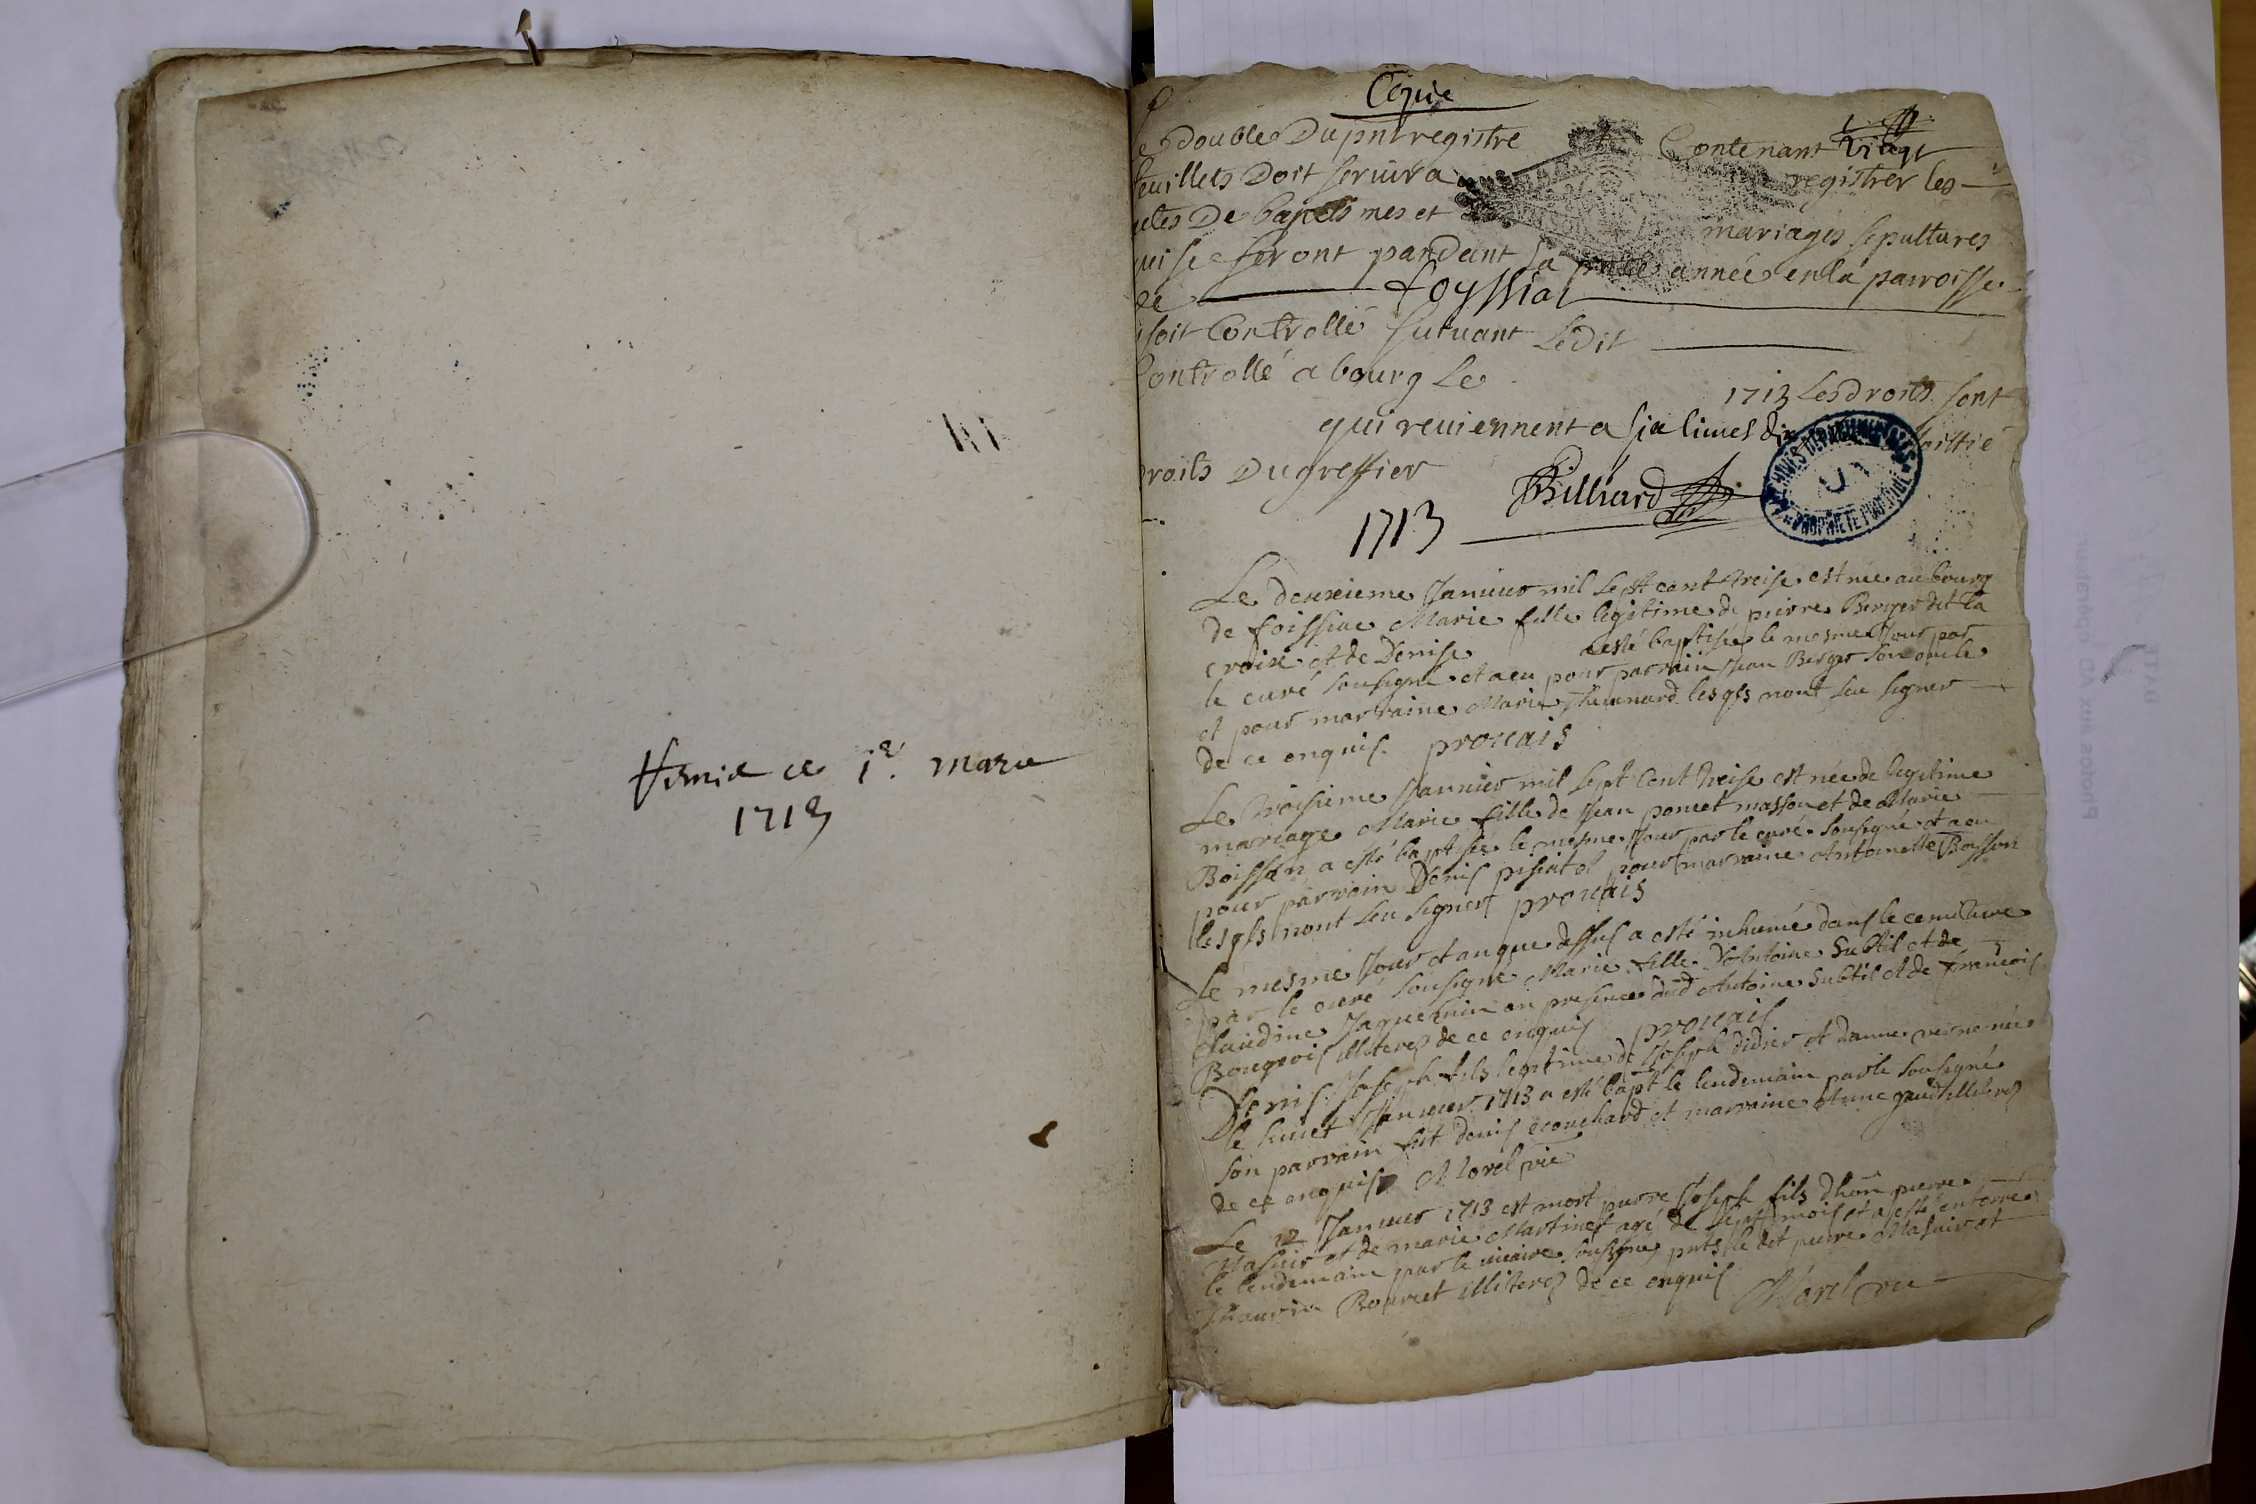 Remie ce 1er. mars
1713
Copie
Le Double Du pnt registre Contenant vingt
feuillets Doit servir a registrer les
actes De baptesmes et mariages sepultures
qui se feront pandant la pnte année en la parroisse
de foyssiat
soit Controllé suiuant Ledit
Controllé a bourg Le 1713 Les droits sont
qui reuiennent a six liures
Droits Du greffier
Billiard
ARCHIVES DEPARTEMENTALES
PROPRIETE PUBLIQUE
1713
Le deuxieme Januier mil sept cent treise est née au bourg
de foissiac Marie fille legitime de pierre Berger dit la
croix et de Denise a esté baptisée le mesme Jour par
le curé sousigné et a eu pour parrain Jean Berger son oncle
et pour marraine Marie Theuenard lesqls nont sceu signer
de ce enquis prouais
Le troisieme Januier mil sept cent treise est née de legitime
mariage Marie fille de Jean poncet masson et de Marie
Boisson a esté baptisée le mesme Jour par le curé sousigné et a eu
pour parrain Denis pisiat et pour marraine Antoinette Boisson
lesqls nont sceu signer prouais
Le mesme Jour et an que dessus a esté inhumé dans le cemitiere
par le curé sousigné Marie fille Dantoine Subtil et de
Claudine Jaquemin en presence dud Antoine Subtil et de francois
Bourgeois illiterés de ce enquis prouais
Denis Joseph fils legitime de Joseph didier et danne verne né
le huict Januier 1713 a esté bapt le lendemain par le sousigné
son parrain fut denis ecouchard et marraine Anne gaud illiterés
de ce enquis Morel vic
Le 12 Januier 1713 est mort pierre Joseph fils dhon pierre
Masuir et de marie Martinet agé de sept mois et a esté enterré
le lendemain par le vicaire sousigné pnts le dit pierre Masuir et
Bouruet illiterés de ce enquis Morel vic